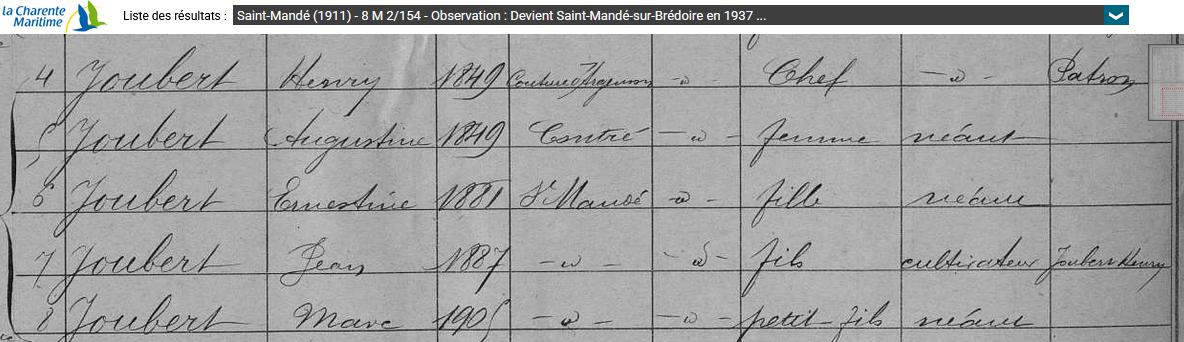 la Charente
Maritime
Liste des résultats : Saint-Mandé (1911) - 8 M 2/154 - Observation : Devient Saint-Mandé-sur-Brédoire en 1937 ...
4 Joubert Henry 1849 Couture d'Argenson -d- Chef -d- Patron
5 Joubert Augustine 1849 Contré -d- femme néant
6 Joubert Ernestine 1881 St Mandé -d- fille néant
7 Joubert Jean 1887 -d- -d- fils cultivateur Joubert Henry
8 Joubert Marc 1905 -d- -d- petit-fils néant